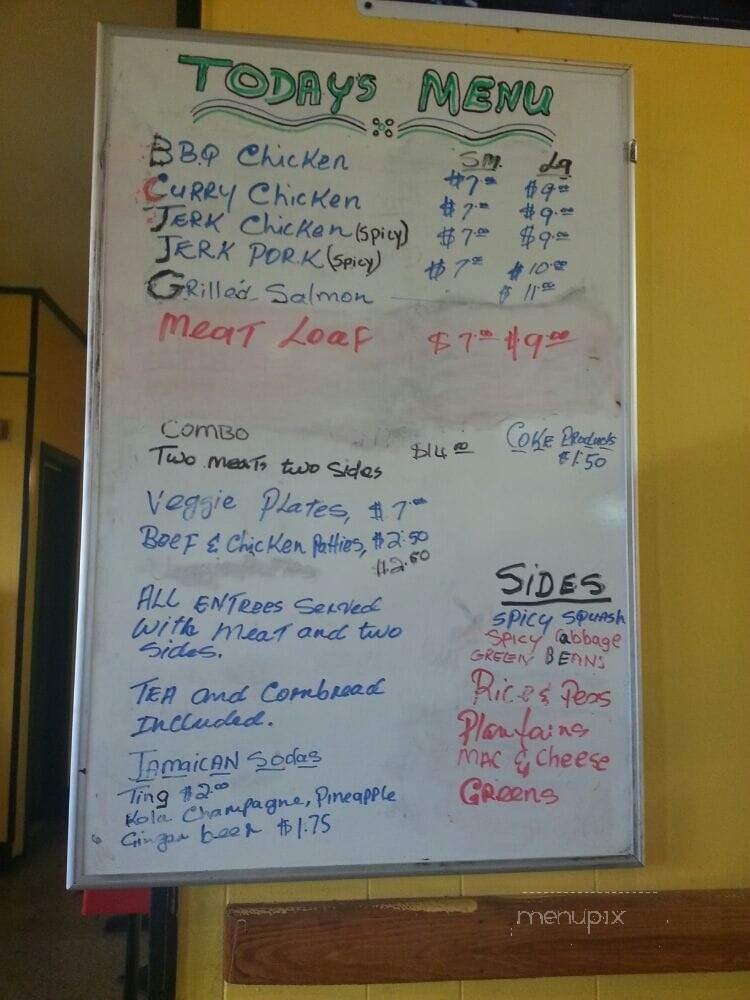 TODAY'S MENU
SM. LG
BBQ Chicken $7.00 $9.00
CURRY Chicken $7.00 $9.00
JERK Chicken (spicy) $7.00 $9.00
JERK PORK (spicy) $7.00 $10.00
GRilled Salmon $11.00
MeaT Loaf $7.00 $9.00
COMBO
Two meats two sides $14.00
COKE Products
$1.50
Veggie Plates, $7.00
Beef & Chicken Patties, $2.50
$2.50
ALL ENTREES Served
with meaT and two
sides.
TEA and Cornbread
Included.
JAMAICAN Sodas
Ting $2.00
Kola Champagne, Pineapple
Ginger beer $1.75
SIDES
SPICY SQUASH
SPICY Cabbage
GREEN BEANS
Rice & Peas
Plantains
MAC & Cheese
Greens
menupix